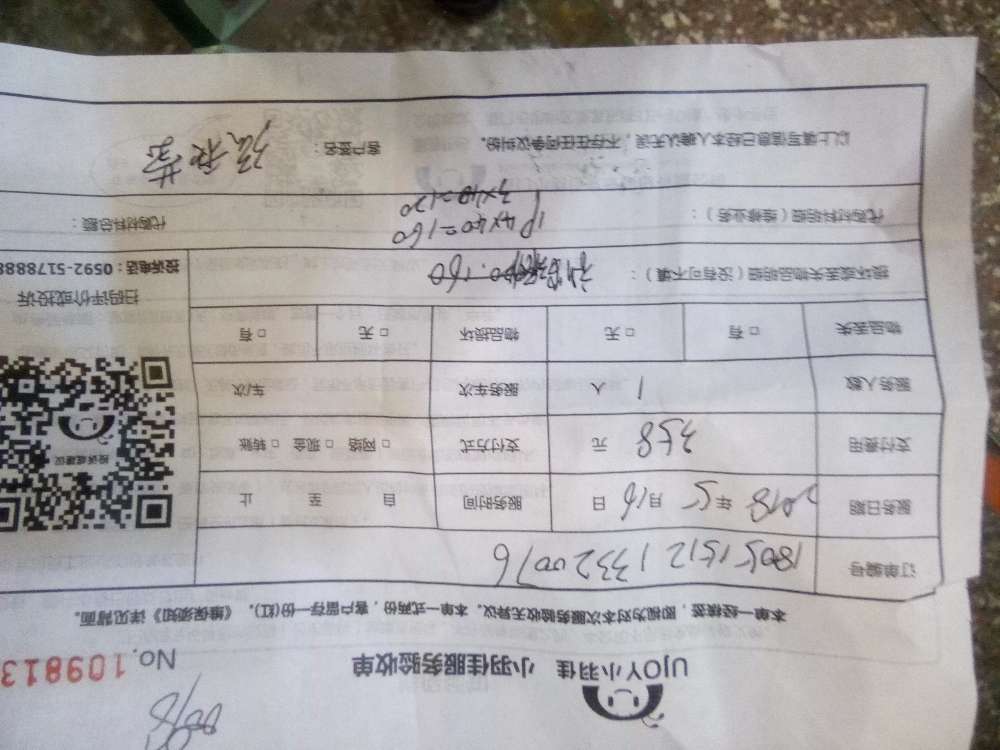 UJOY小羽佳 小羽佳服务验收单 No.109813
本单一经核签，即视为对本次服务验收无异议。本单一式两份，客户留存一份(红)。《维保须知》详见背面。
订单编号 1805151213320076
服务日期 2018年5月16日 服务时间 自 至 止
支付费用 358 元 支付方式 □网络 □现金 □转账
服务人数 1 人 服务车次 车/次
物品丢失 □有 □无 物品损坏 □无 □有
损坏或丢失物品明细（没有可不填）：
代购材料明细（维修业务）： 1P 4×40=160
3×40=120
代购材料总额：
以上填写信息已经本人确认无误，不存在任何争议纠纷。 客户签名：
投诉或建议
扫码评价或投诉
投诉电话：0592-5178888